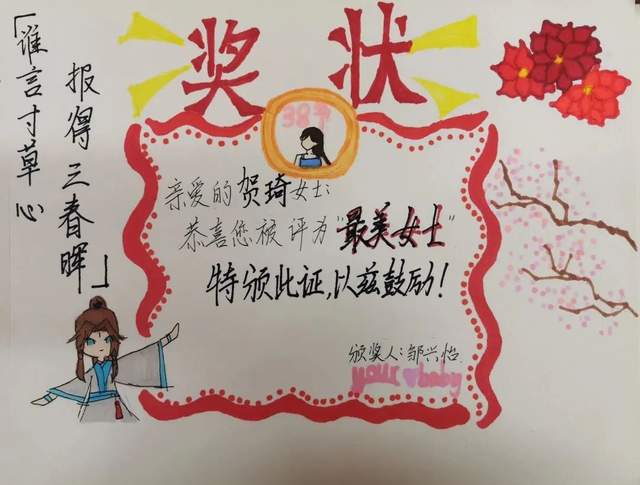 「谁言寸草心
报得三春晖」
奖状
38节
亲爱的贺琦女士:
恭喜您被评为“最美女士”
特颁此证,以兹鼓励!
颁奖人:邹兴怡
your baby